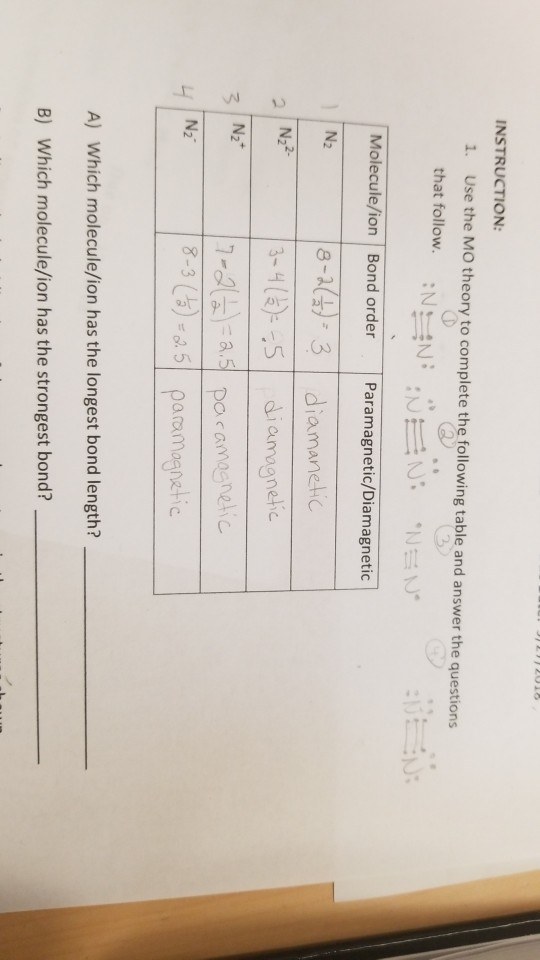 INSTRUCTION:
1. Use the MO theory to complete the following table and answer the questions
that follow.
① ② ③ ④
:N≡N: :N≡N: •N≡N• :N≡N:
Molecule/ion Bond order Paramagnetic/Diamagnetic
1 N₂ 8-2(½)=3 diamanetic
2 N₂²⁻ 3-4(½)=.5 diamagnetic
3 N₂⁺ 7-2(½)=2.5 paramagnetic
4 N₂⁻ 8-3(½)=2.5 paramagnetic
A) Which molecule/ion has the longest bond length?
B) Which molecule/ion has the strongest bond?